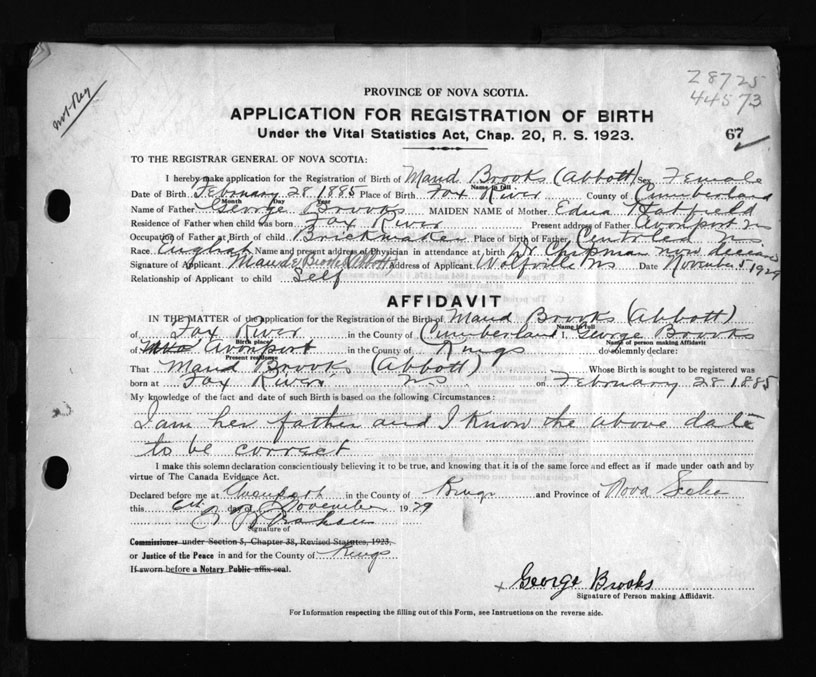 Not Reg
28725
44573
PROVINCE OF NOVA SCOTIA.
APPLICATION FOR REGISTRATION OF BIRTH
Under the Vital Statistics Act, Chap. 20, R. S. 1923.
67
TO THE REGISTRAR GENERAL OF NOVA SCOTIA:
I hereby make application for the Registration of Birth of Maud Brooks (Abbott) Sex Female
Name in full
Date of Birth February 28 1885 Place of Birth Fox River County of Cumberland
Month Day Year
Name of Father George Brooks MAIDEN NAME of Mother Edna Hatfield
Residence of Father when child was born Fox River Present address of Father Avonport NS
Occupation of Father at Birth of child Brickmaker Place of birth of Father NS
Race English Name and present address of Physician in attendance at birth Dr Chipman now deceas
Signature of Applicant Maud Brooks Abbott Address of Applicant Wolfville NS Date November 5 1929
Relationship of Applicant to child Self
AFFIDAVIT
IN THE MATTER of the application for the Registration of the Birth of Maud Brooks (Abbott)
Name in full
of Fox River in the County of Cumberland I, George Brooks
Birth place Name of person making Affidavit
of Avonport in the County of Kings do solemnly declare:
Present residence
That Maud Brooks (Abbott) Whose Birth is sought to be registered was
born at Fox River NS on February 28 1885
My knowledge of the fact and date of such Birth is based on the following Circumstances:
I am her father and I know the above date
to be correct
I make this solemn declaration conscientiously believing it to be true, and knowing that it is of the same force and effect as if made under oath and by
virtue of The Canada Evidence Act.
Declared before me at Avonport in the County of Kings and Province of Nova Scotia
this day of November 1929
Signature of
Commissioner under Section 5, Chapter 38, Revised Statutes, 1923,
or Justice of the Peace in and for the County of Kings
If sworn before a Notary Public affix seal.
x George Brooks
Signature of Person making Affidavit.
For Information respecting the filling out of this Form, see Instructions on the reverse side.